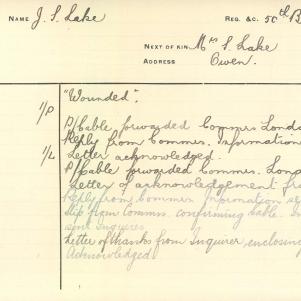 NAME J. S. Lake REG. &C. 50th B
NEXT OF KIN Mrs S. Lake
ADDRESS Owen.
"Wounded".
1/P P/Cable forwarded Commrs Lond
Reply from Commrs. Information
1/L Letter acknowledged.
P/Cable forwarded Commrs. Lon
Letter of acknowledgement fr
Reply from Commrs Information se
slip from Commrs. confirming cable. In
sent Inquirer
Letter of thanks from Inquirer, enclosing
Acknowledged.